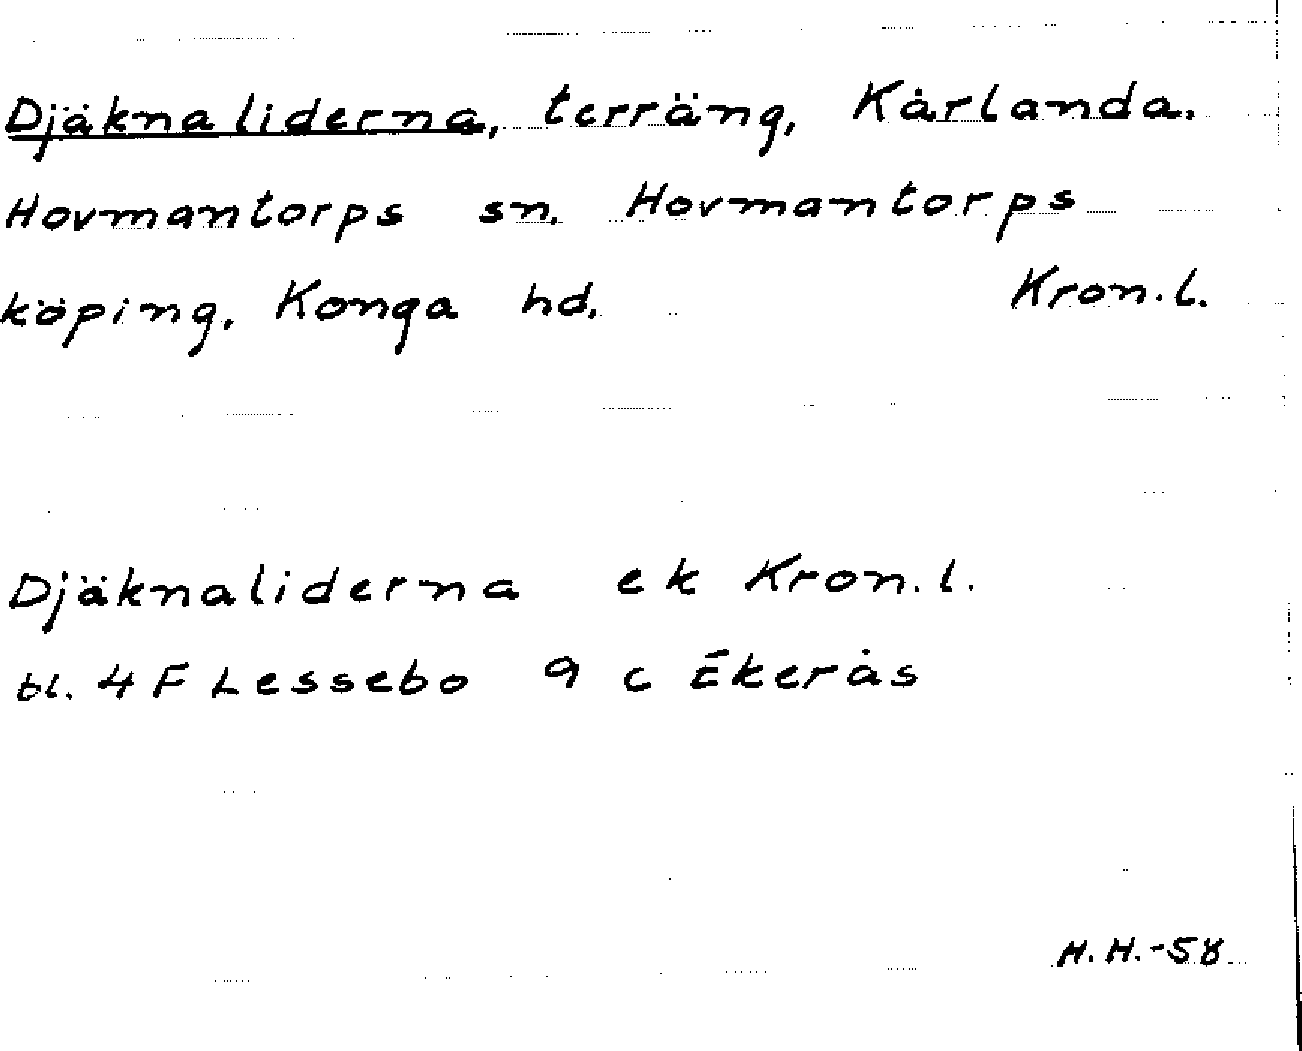 Djäknaliderna, terräng, Kårlanda.
Hovmantorps sn. Hovmantorps
köping, Konga hd. Kron.l.
Djäknaliderna ek Kron.l.
bl. 4 F Lessebo 9 c Ekerås
H.H.-58